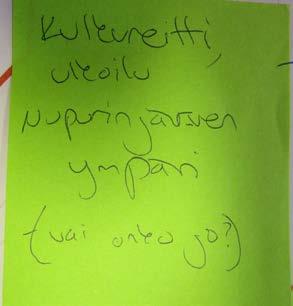 Kulkureitti,
ulkoilu
Nupurinjärven
ympäri
(vai onko jo?)